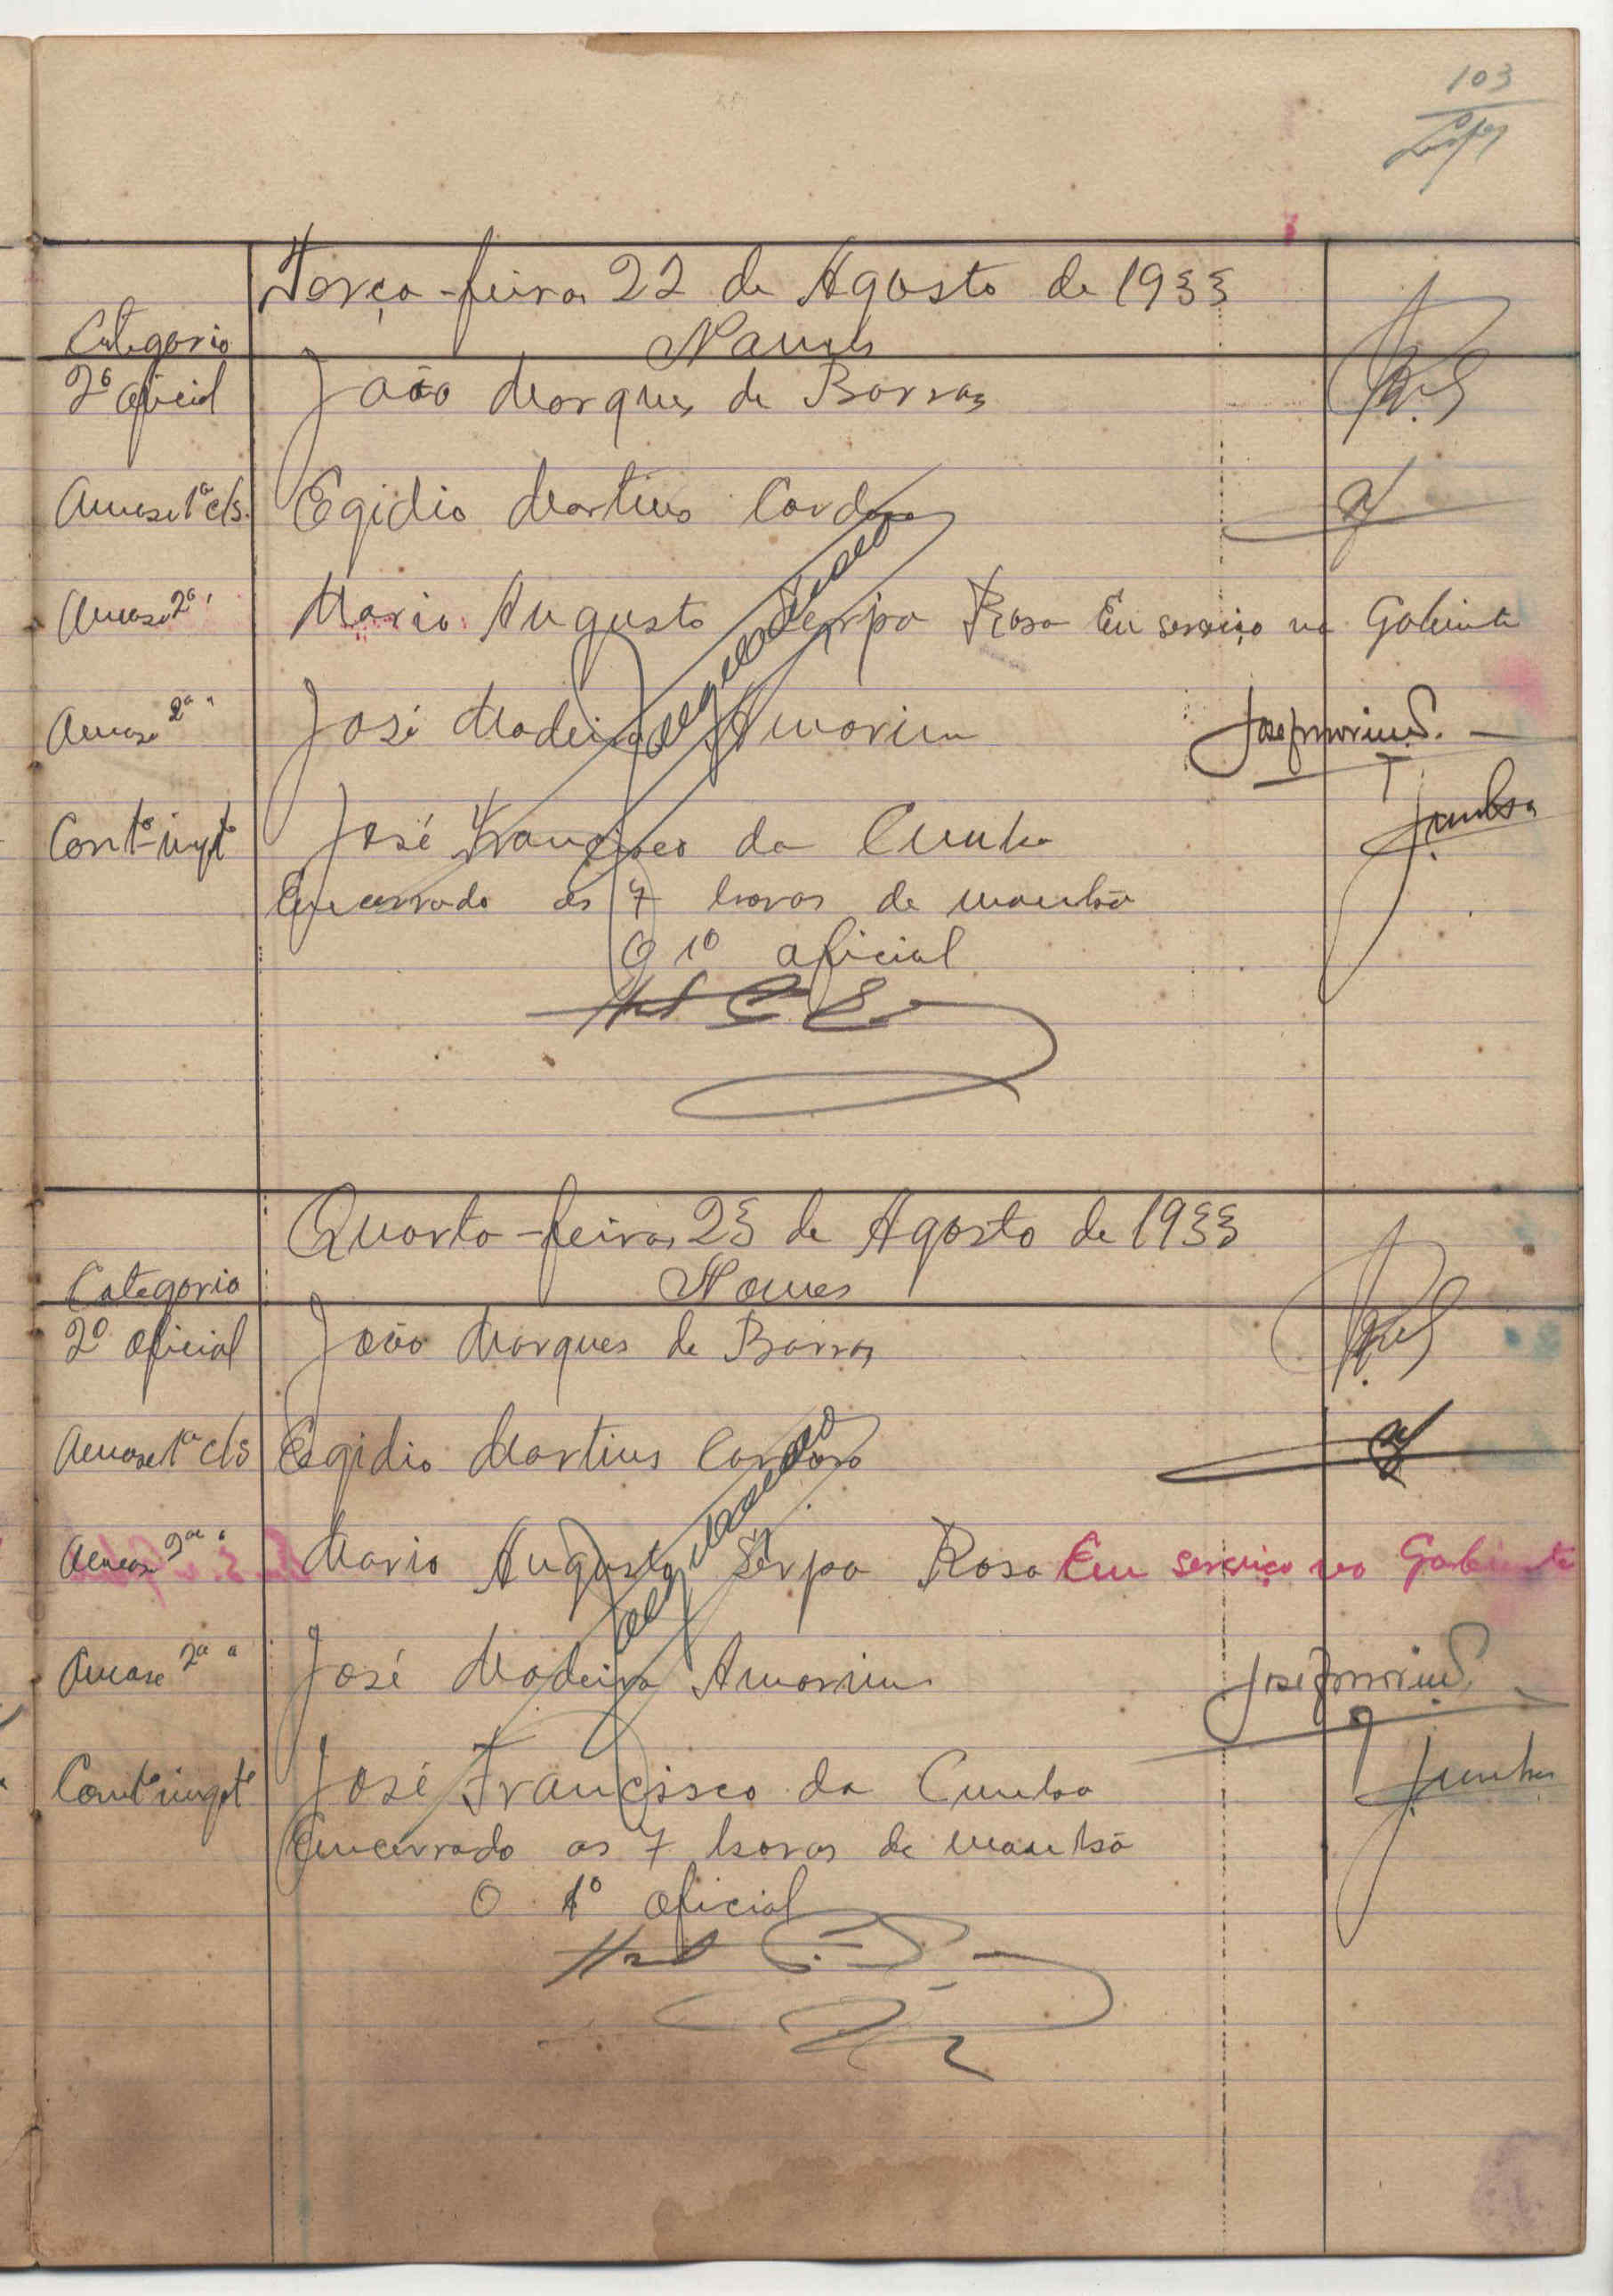 103
Terça-feira 22 de Agosto de 1933
Categoria Nomes
2º oficial João Marques de Barros
1ª cls. Egidio Martins Cardoso
2ª " Mario Augusto Serpa Rosa Em serviço no Gabinete
2ª " José Madeira Amorim José Amorim
José Francisco da Cunha JCunha
Encerrado ás 7 horas de manhã
O 1º oficial
Quarta-feira 23 de Agosto de 1933
Categoria Nomes
2º oficial João Marques de Barros
1ª cls Egidio Martins Cardoso
2ª " Mario Augusto Serpa Rosa Em serviço no Gabinete
2ª " José Madeira Amorim José Amorim
José Francisco da Cunha JCunha
Encerrado as 7 horas de manhã
O 1º oficial